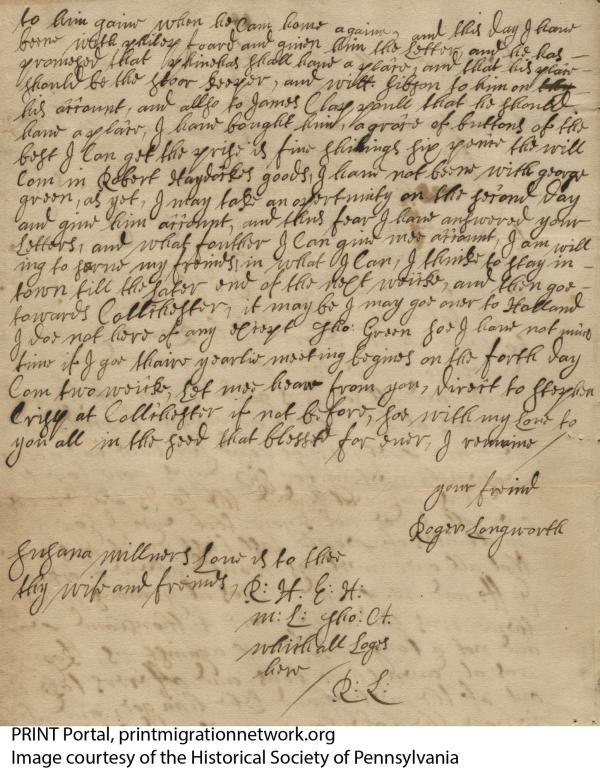 to him gaine when he Cam home againe, and this day I have
beene with philep foard and given him the Letter, and he has
promesed that phinehas shall have a place, and that his place
should be the stoor keeper, and will. Gibson to him on
his account, and allso to James Clay pull that he should
have a place, I have bought him, a groce of buttons of the
best I Can get the prise is five shilings six pence the will
Com in Robert Haydockes goods, I have not beene with george
green, as yet, I may take an opertunity on the second day
and give him account, and thus fear I have answered your
Letters, and what fouther I Can give mee account, I am will
ing to serve my freinds, in what I Can, I thinke to stay in
town till the Later end of the next weicke, and then goe
towards Collchester, it may be I may goe over to Holland
I does not here of any except Tho: Green soe I have not much
time if I goe thaire yearlie meeting begines on the forth day
Com two weicke, Let mee hear from you, direct to Stephen
Crisp at Collchester if not before, soe with my Love to
you all in the seed that blessed for ever, I remaine
your freind
Roger Longworth
Susana millners Love is to thee
thy wife and freinds,
R: H: E: H:
m: L: Tho: Ct.
which all Loges
here
R: L:
PRINT Portal, printmigrationnetwork.org
Image courtesy of the Historical Society of Pennsylvania